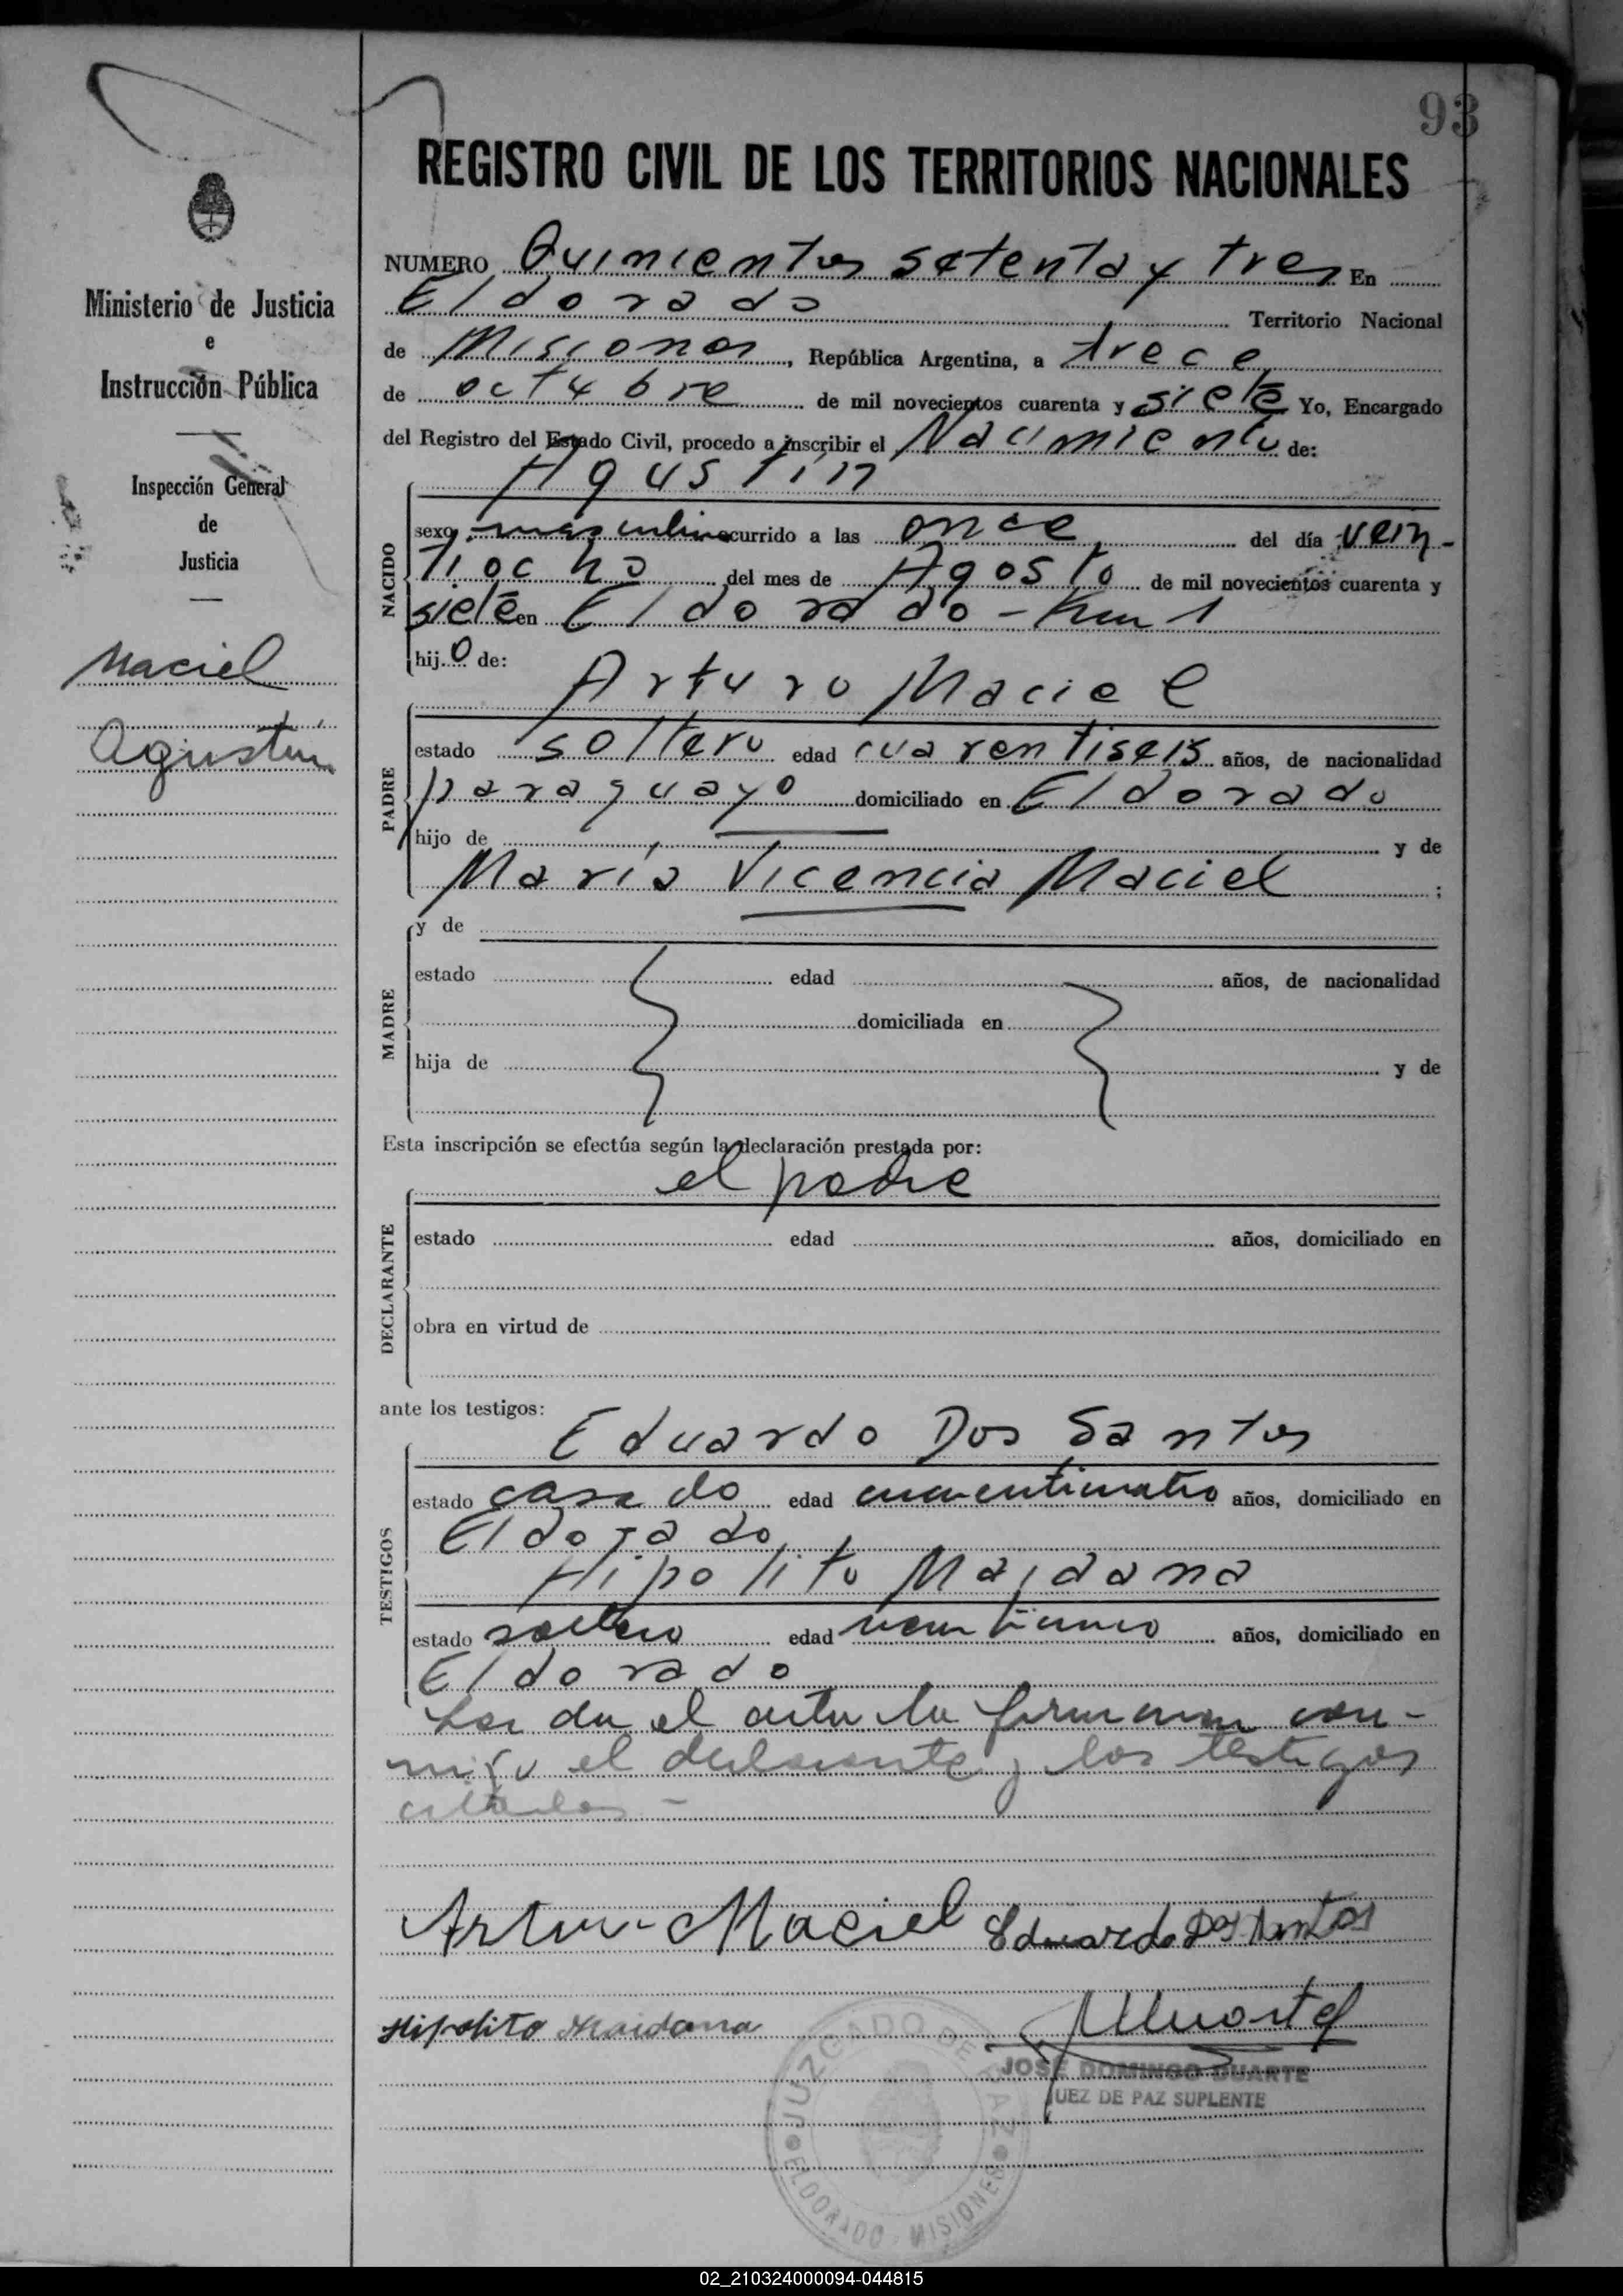 93
REGISTRO CIVIL DE LOS TERRITORIOS NACIONALES
Ministerio de Justicia
e
Instrucción Pública
Inspección General
de
Justicia
Maciel
Agustín
NUMERO Quinientos setenta y tres En
Eldorado Territorio Nacional
de Misiones, República Argentina, a trece
de octubre de mil novecientos cuarenta y siete Yo, Encargado
del Registro del Estado Civil, procedo a inscribir el Nacimiento de:
Agustín
NACIDO
sexo masculino ocurrido a las once del día vein-
tiocho del mes de Agosto de mil novecientos cuarenta y
siete en Eldorado - Km 1
hijo de:
Arturo Maciel
PADRE
estado soltero edad cuarentiseis años, de nacionalidad
paraguayo domiciliado en Eldorado
hijo de y de
María Vicencia Maciel ;
MADRE
y de
estado edad años, de nacionalidad
domiciliada en
hija de y de
Esta inscripción se efectúa según la declaración prestada por:
el padre
DECLARANTE
estado edad años, domiciliado en
obra en virtud de
ante los testigos:
Eduardo Dos Santos
TESTIGOS
estado casado edad cuarenticuatro años, domiciliado en
Eldorado
Hipolito Maidana
estado soltero edad años, domiciliado en
Eldorado
el acta la firman con-
migo el declarante y los testigos
citados -
Arturo Maciel Eduardo Dos Santos
Hipolito Maidana
JOSE DOMINGO DUARTE
JUEZ DE PAZ SUPLENTE
JUZGADO DE PAZ
ELDORADO - MISIONES
02_210324000094-044815